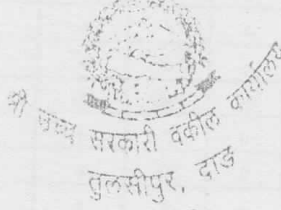 श्री उच्च सरकारी वकील कार्यालय
तुलसीपुर, दाङ